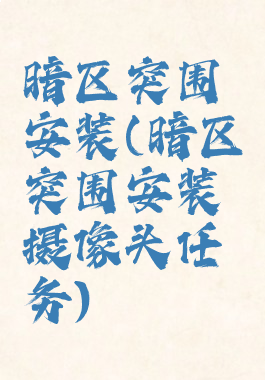 暗区突围
安装(暗区
突围安装
摄像头任
务)